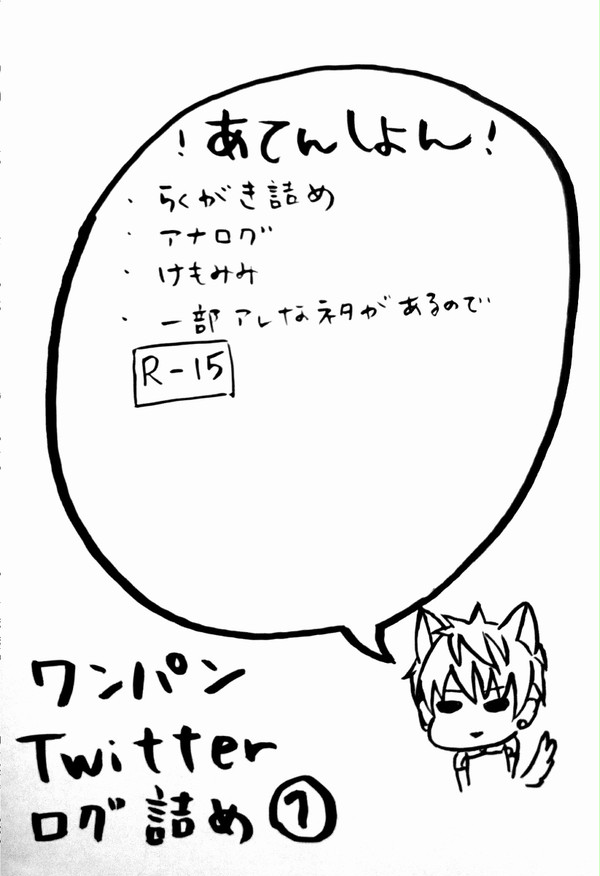 ！あてんしょん！
・らくがき詰め
・アナログ
・けもみみ
・一部アレなネタがあるので
R-15
ワンパン
Twitter
ログ詰め⑦